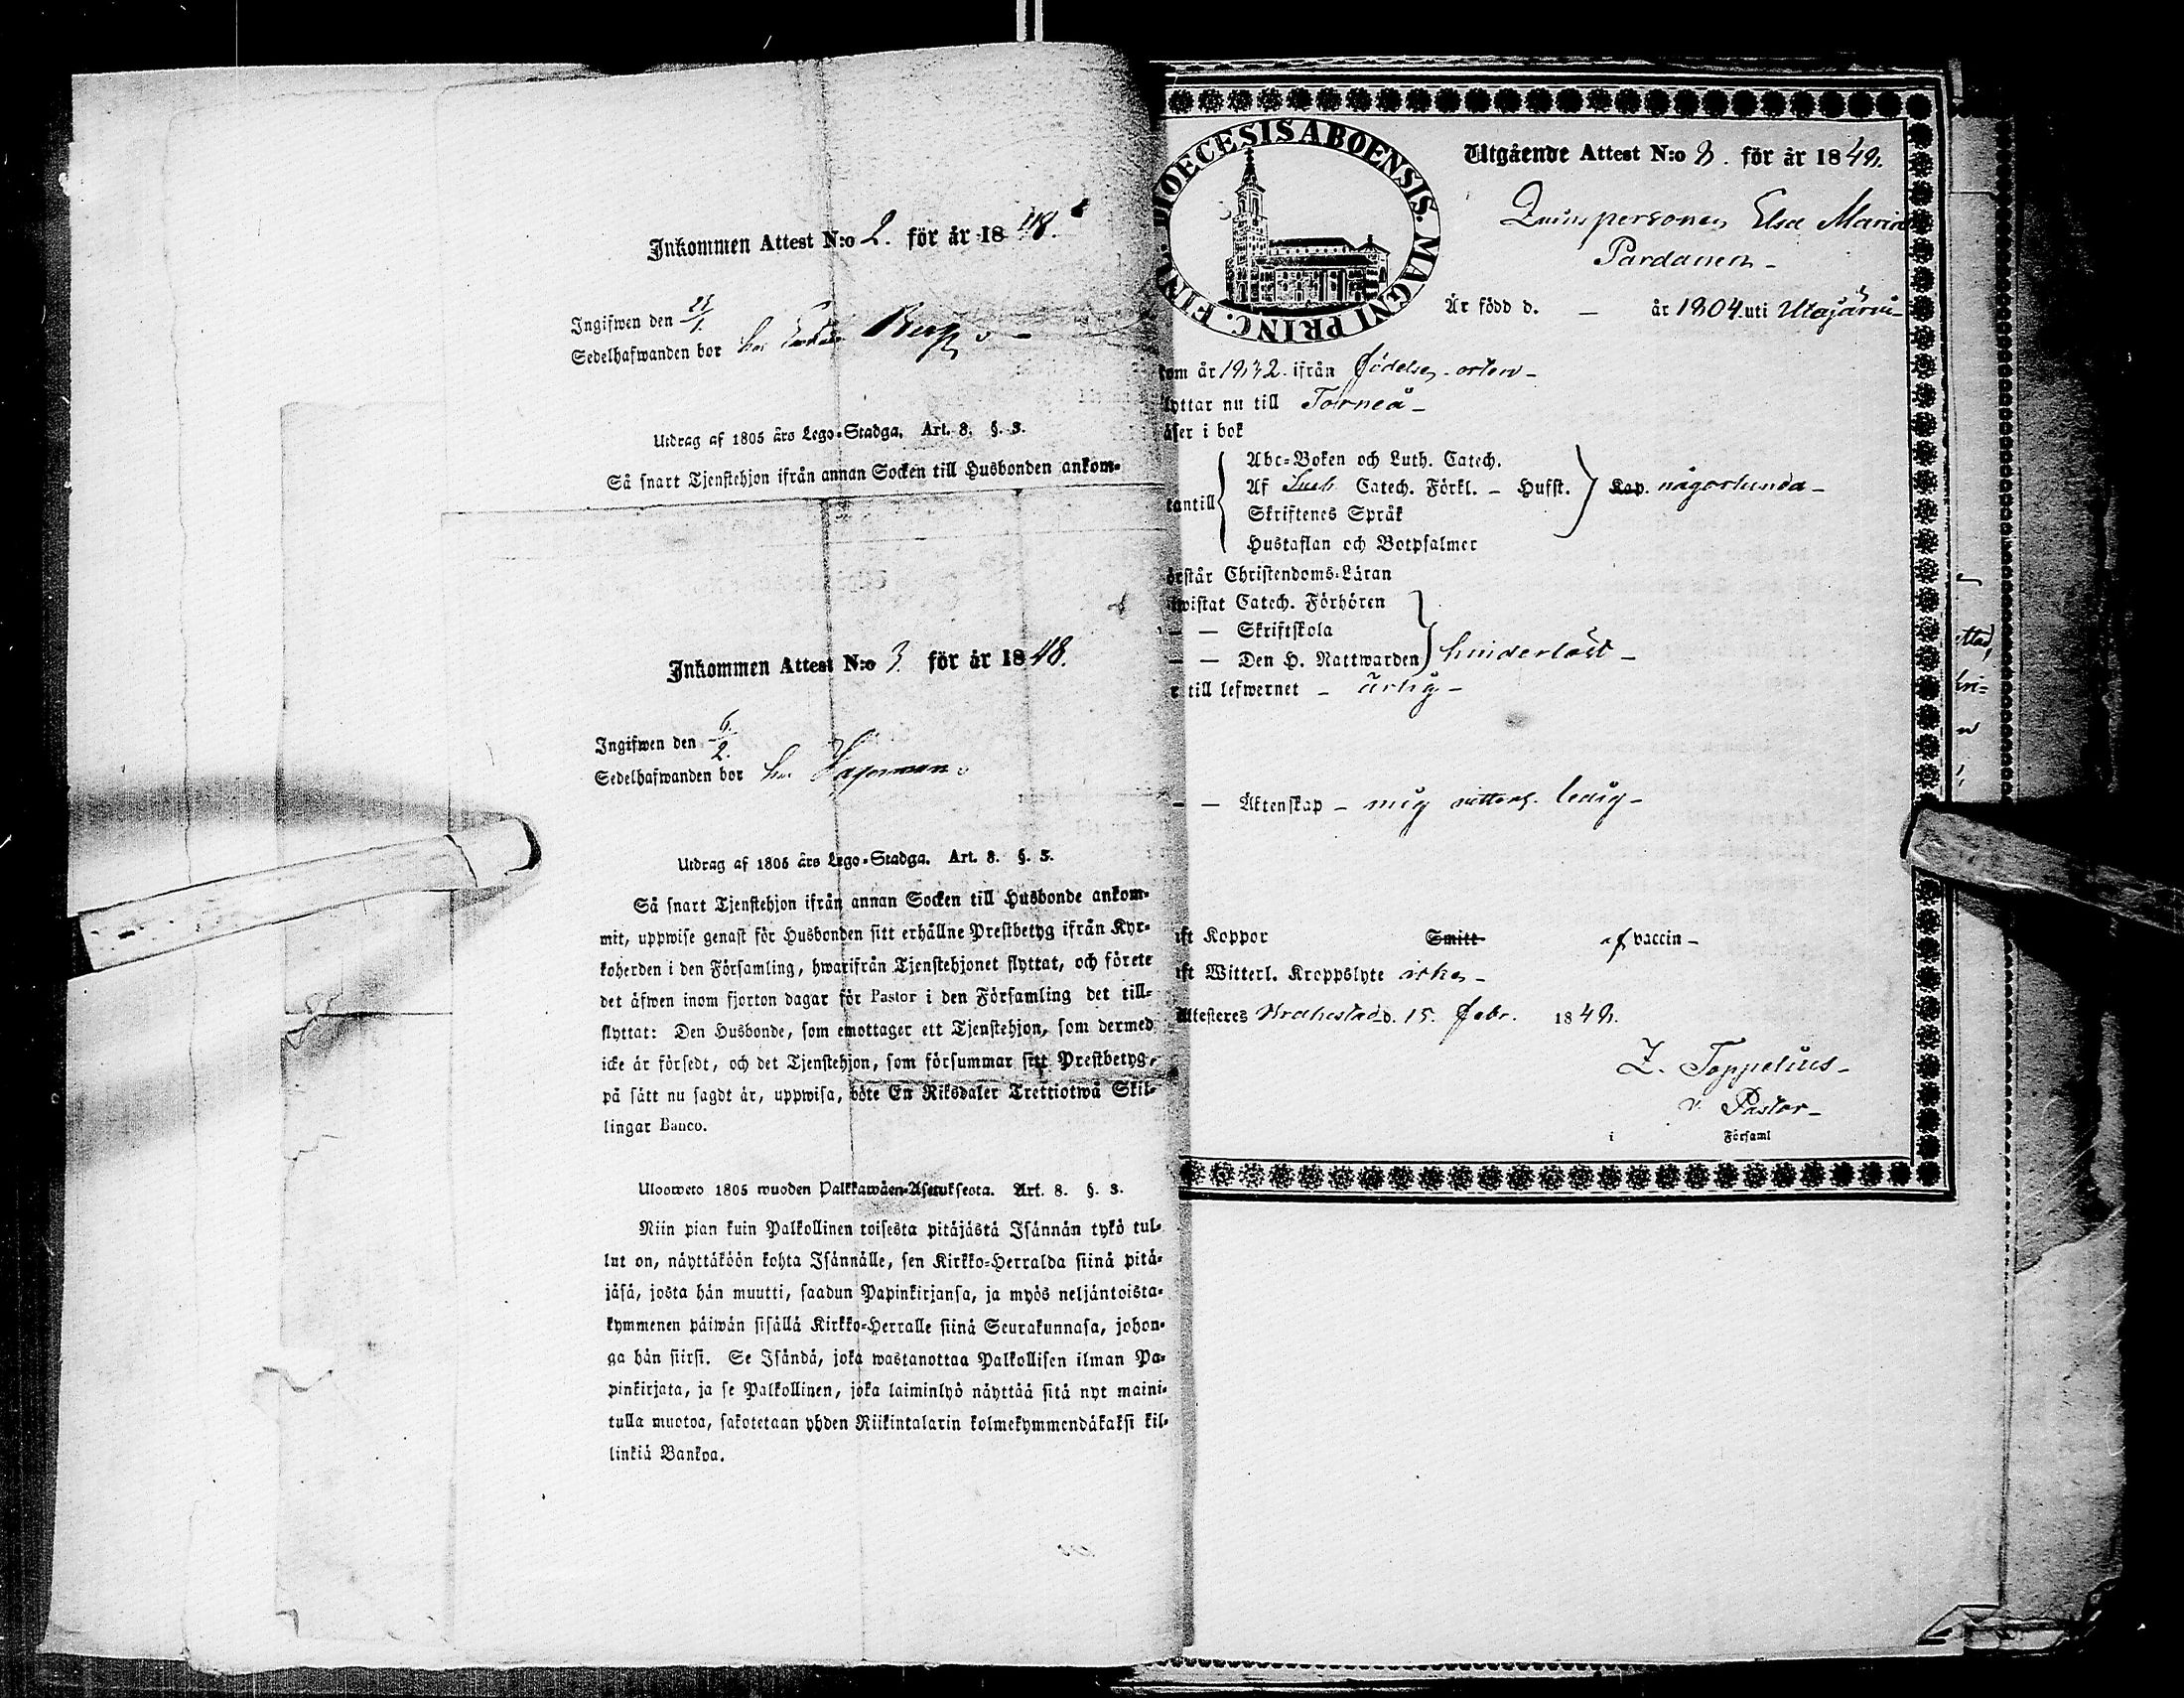 Inkommen Attest N:o 2. för år 1848.
Ingifwen den 23/1.
Sedelhafwanden bor hos Berg
Utdrag af 1805 års Lego-Stadga. Art. 8. §. 3.
Så snart Tjenstehjon ifrån annan Socken till Husbonden ankom-
Inkommen Attest N:o 3. för år 1848.
Ingifwen den 6/2.
Sedelhafwanden bor hos Hagerman
Utdrag af 1805 års Lego-Stadga. Art. 8. §. 3.
Så snart Tjenstehjon ifrån annan Socken till Husbonde ankom-
mit, uppwise genast för Husbonden sitt erhållne Prestbetyg ifrån Kyr-
koherden i den Församling, hwarifrån Tjenstehjonet flyttat, och förete
det äfwen inom fjorton dagar för Pastor i den Församling det till-
flyttat: Den Husbonde, som emottager ett Tjenstehjon, som dermed
icke är försedt, och det Tjenstehjon, som försummar sitt Prestbetyg,
på sätt nu sagdt är, uppwisa, böte En Riksdaler Trettiotwå Skil-
lingar Banco.
Ulosweto 1805 wuoden Palkkawäen-Asetuksesta. Art. 8. §. 3.
Niin pian kuin Palkollinen toisesta pitäjästä Isännän tykö tul-
lut on, näyttäköön kohta Isännälle, sen Kirkko-Herralda siinä pitä-
jäsä, josta hän muutti, saadun Papinkirjansa, ja myös neljäntoista-
kymmenen päiwän sisällä Kirkko-Herralle siinä Seurakunnasa, johon-
ga hän siirsi. Se Isändä, joka wastanottaa Palkollisen ilman Pa-
pinkirjata, ja se Palkollinen, joka laiminlyö näyttää sitä nyt maini-
tulla muotoa, sakotetaan yhden Riikintalarin kolmekymmendäkaksi kil-
linkiä Bankoa.
DIOECESIS ABOENSIS. MAGNI PRINC. FINL.
Utgående Attest N:o 3. för år 1848.
Qvinspersonen Elsa Maria
Pardanen -
Är född d. - år 1804. uti Utajärvi -
kom år 1832. ifrån födelse-orten -
lyttar nu till Torneå -
äser i bok
Abc-Boken och Luth. Catech.
tantill Af Luth. Catech. Förkl. - Husst. Kap. någorlunda -
Skriftenes Språk
Hustaflan och Botpsalmer
örstår Christendoms-Läran
iwistat Catech. Förhören
- - Skriftskola
- - Den H. Nattwarden hinderlöst -
r till lefwernet - ärlig -
- - Äktenskap - mig vetterl. ledig -
ft Koppor Smitt af vaccin -
ft Witterl. Kroppslyte icke -
Attesteres Brahestad d. 15. Febr. 1848.
Z. Toppelius -
v. Pastor -
i Församl